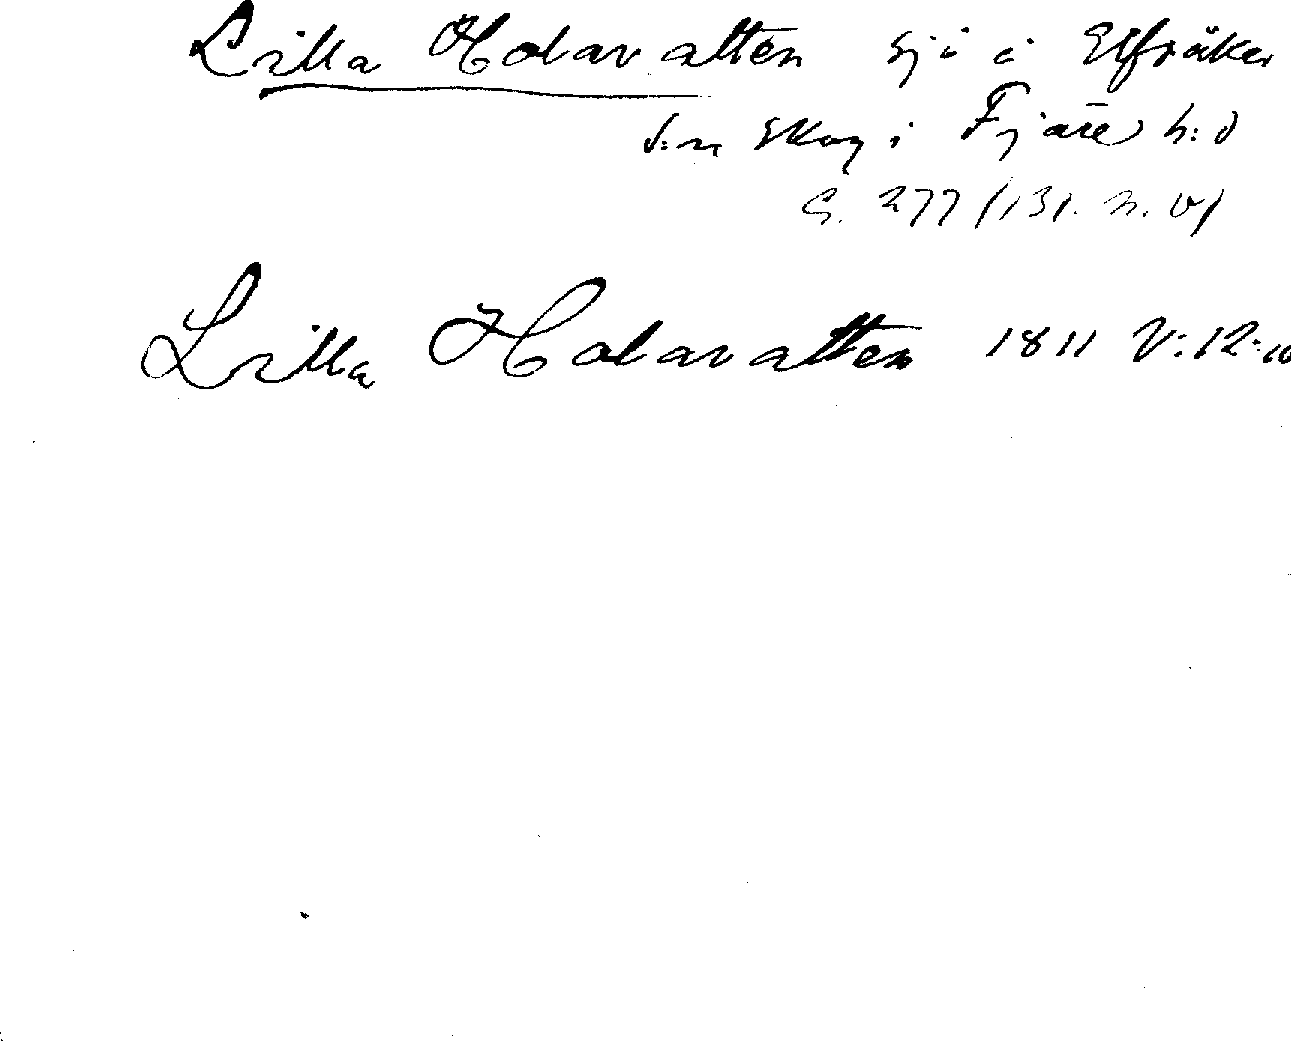 Lilla Holavatten sjö i Elfsåker
s:n skog i Fjäre h:d
S. 277 (131. N. V)
Lilla Holavatten 1811 V:12:10